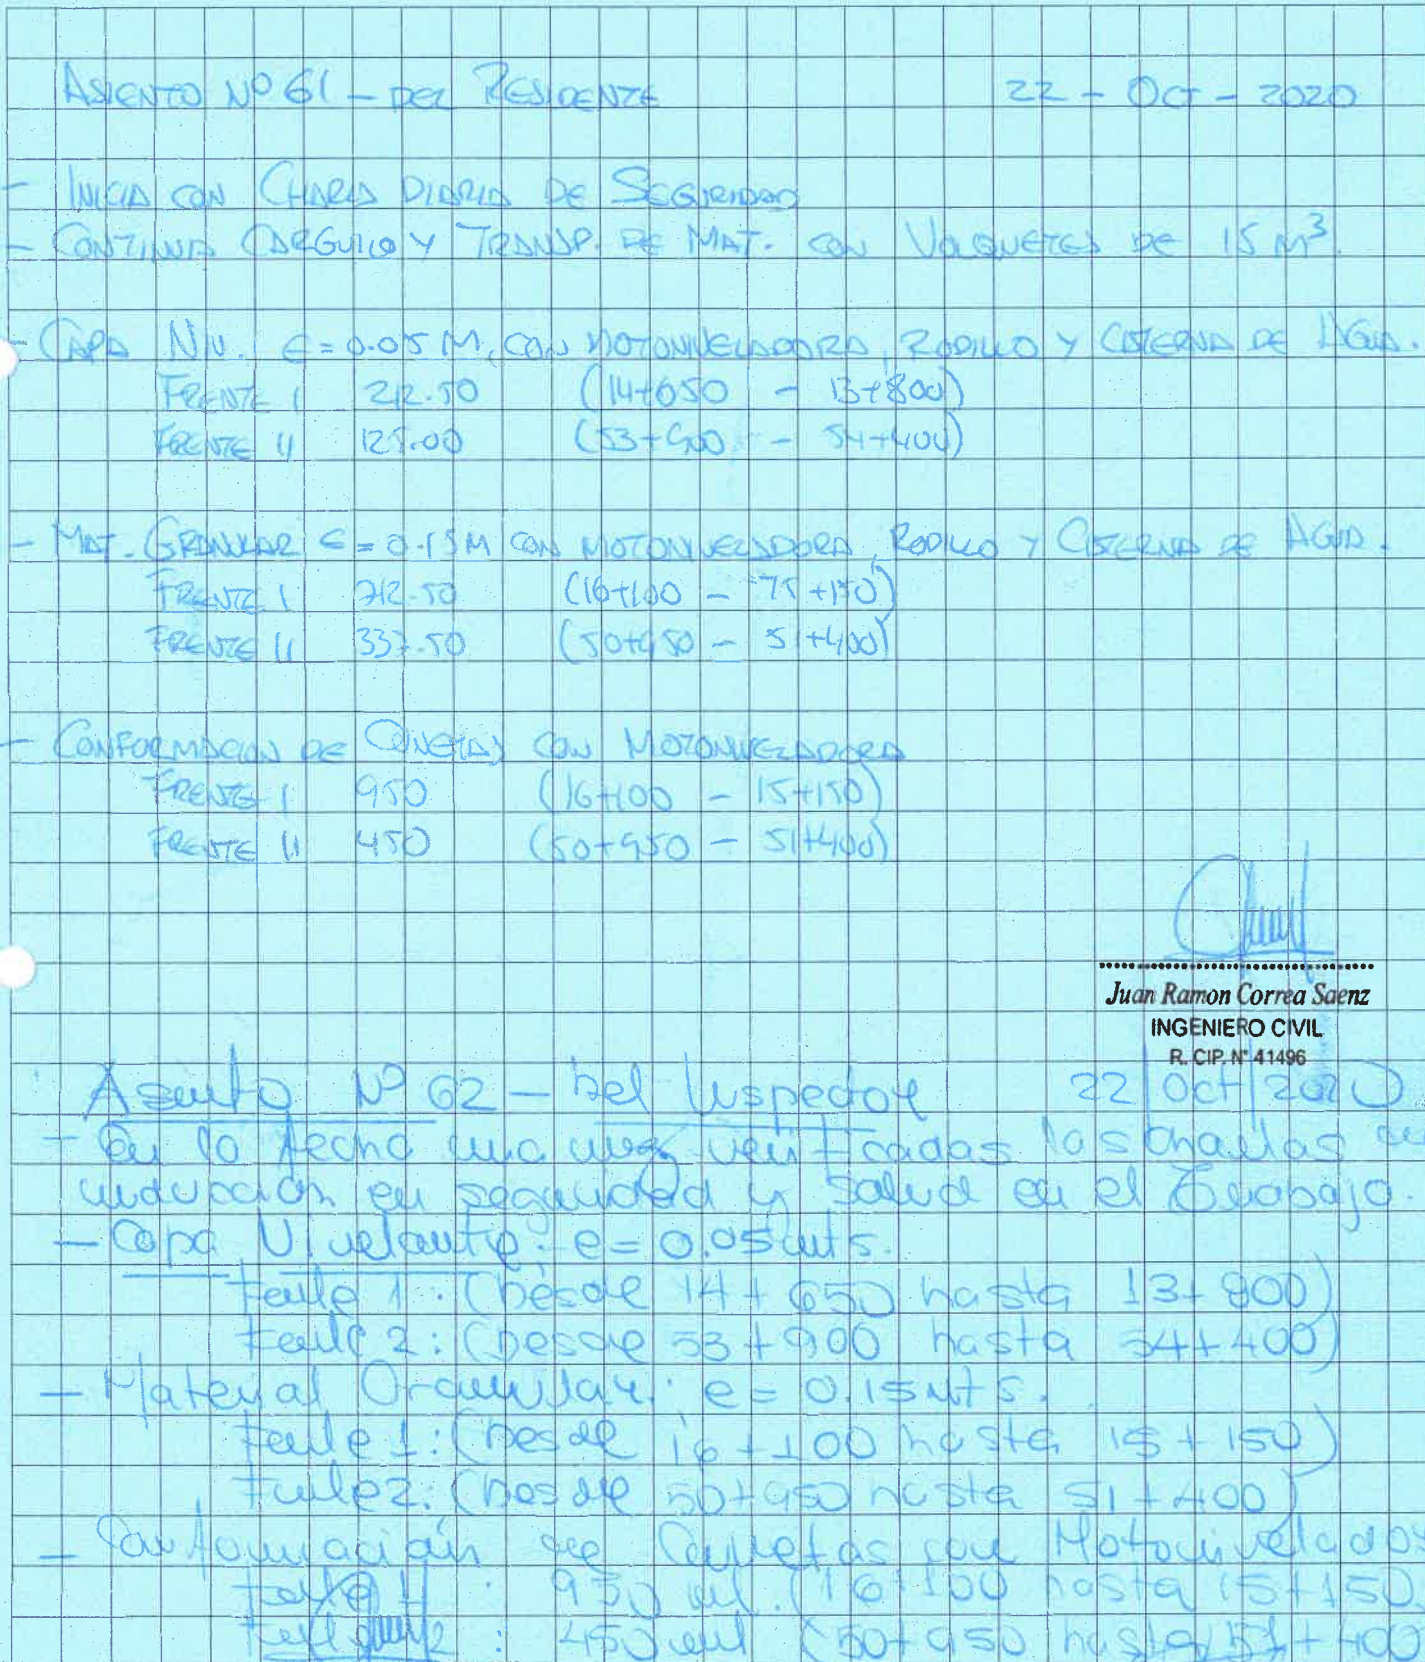 ASIENTO Nº 61 - DEL RESIDENTE 22 - OCT - 2020
- INICIA CON CHARLA DIARIA DE SEGURIDAD
- CONTINUA CARGUIO Y TRANSP. DE MAT. CON VOLQUETES DE 15 M³.
- CAPA NIV. E=0.05 M, CON MOTONIVELADORA, RODILLO Y CISTERNA DE AGUA.
FRENTE I 212.50 (14+650 - 13+800)
FRENTE II 125.00 (53+900 - 54+400)
- MAT. GRANULAR E=0.15M CON MOTONIVELADORA, RODILLO Y CISTERNA DE AGUA.
FRENTE I 712.50 (16+100 - 15+150)
FRENTE II 337.50 (50+950 - 51+400)
- CONFORMACION DE CUNETAS CON MOTONIVELADORA
FRENTE I 950 (16+100 - 15+150)
FRENTE II 450 (50+950 - 51+400)
Juan Ramon Correa Saenz
INGENIERO CIVIL
R. CIP. N° 41496
Asiento Nº 62 - Del Inspector 22/Oct/2020
- En la fecha una vez verificadas las charlas de
inducción en seguridad y salud en el Trabajo.
- Capa Nivelante: e= 0.05 mts.
Frente 1: (Desde 14+650 hasta 13+800)
Frente 2: (Desde 53+900 hasta 54+400)
- Material Granular: e= 0.15 Mts.
Frente 1: (Desde 16+100 hasta 15+150)
Frente 2: (Desde 50+950 hasta 51+400)
- Conformación de Cunetas con Motonivelador
Frente 1: 950 ml. (16+100 hasta 15+150)
Frente 2: 450 ml (50+950 hasta 51+400